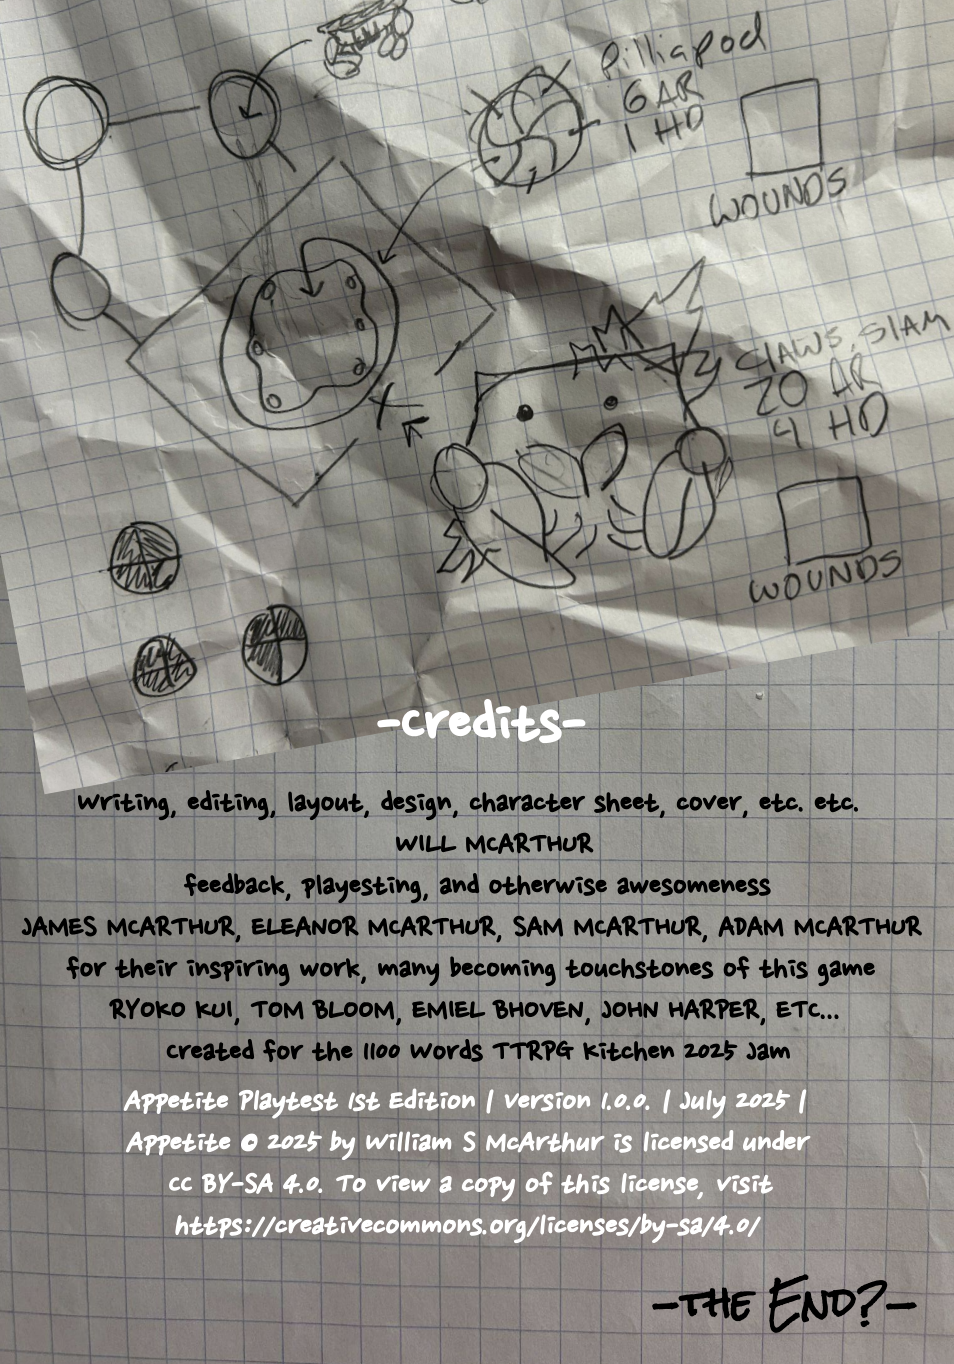 Pilliapod
6 AR
1 HD
WOUNDS
CLAWS, SLAM
20 AR
4 HD
WOUNDS
-credits-
writing, editing, layout, design, character sheet, cover, etc. etc.
WILL MCARTHUR
feedback, playesting, and otherwise awesomeness
JAMES MCARTHUR, ELEANOR MCARTHUR, SAM MCARTHUR, ADAM MCARTHUR
for their inspiring work, many becoming touchstones of this game
RYOKO KUI, TOM BLOOM, EMIEL BHOVEN, JOHN HARPER, ETC...
created for the 1100 Words TTRPG Kitchen 2025 Jam
Appetite Playtest 1st Edition | version 1.0.0. | July 2025 |
Appetite © 2025 by William S McArthur is licensed under
CC BY-SA 4.0. To view a copy of this license, visit
https://creativecommons.org/licenses/by-sa/4.0/
-THE END?-